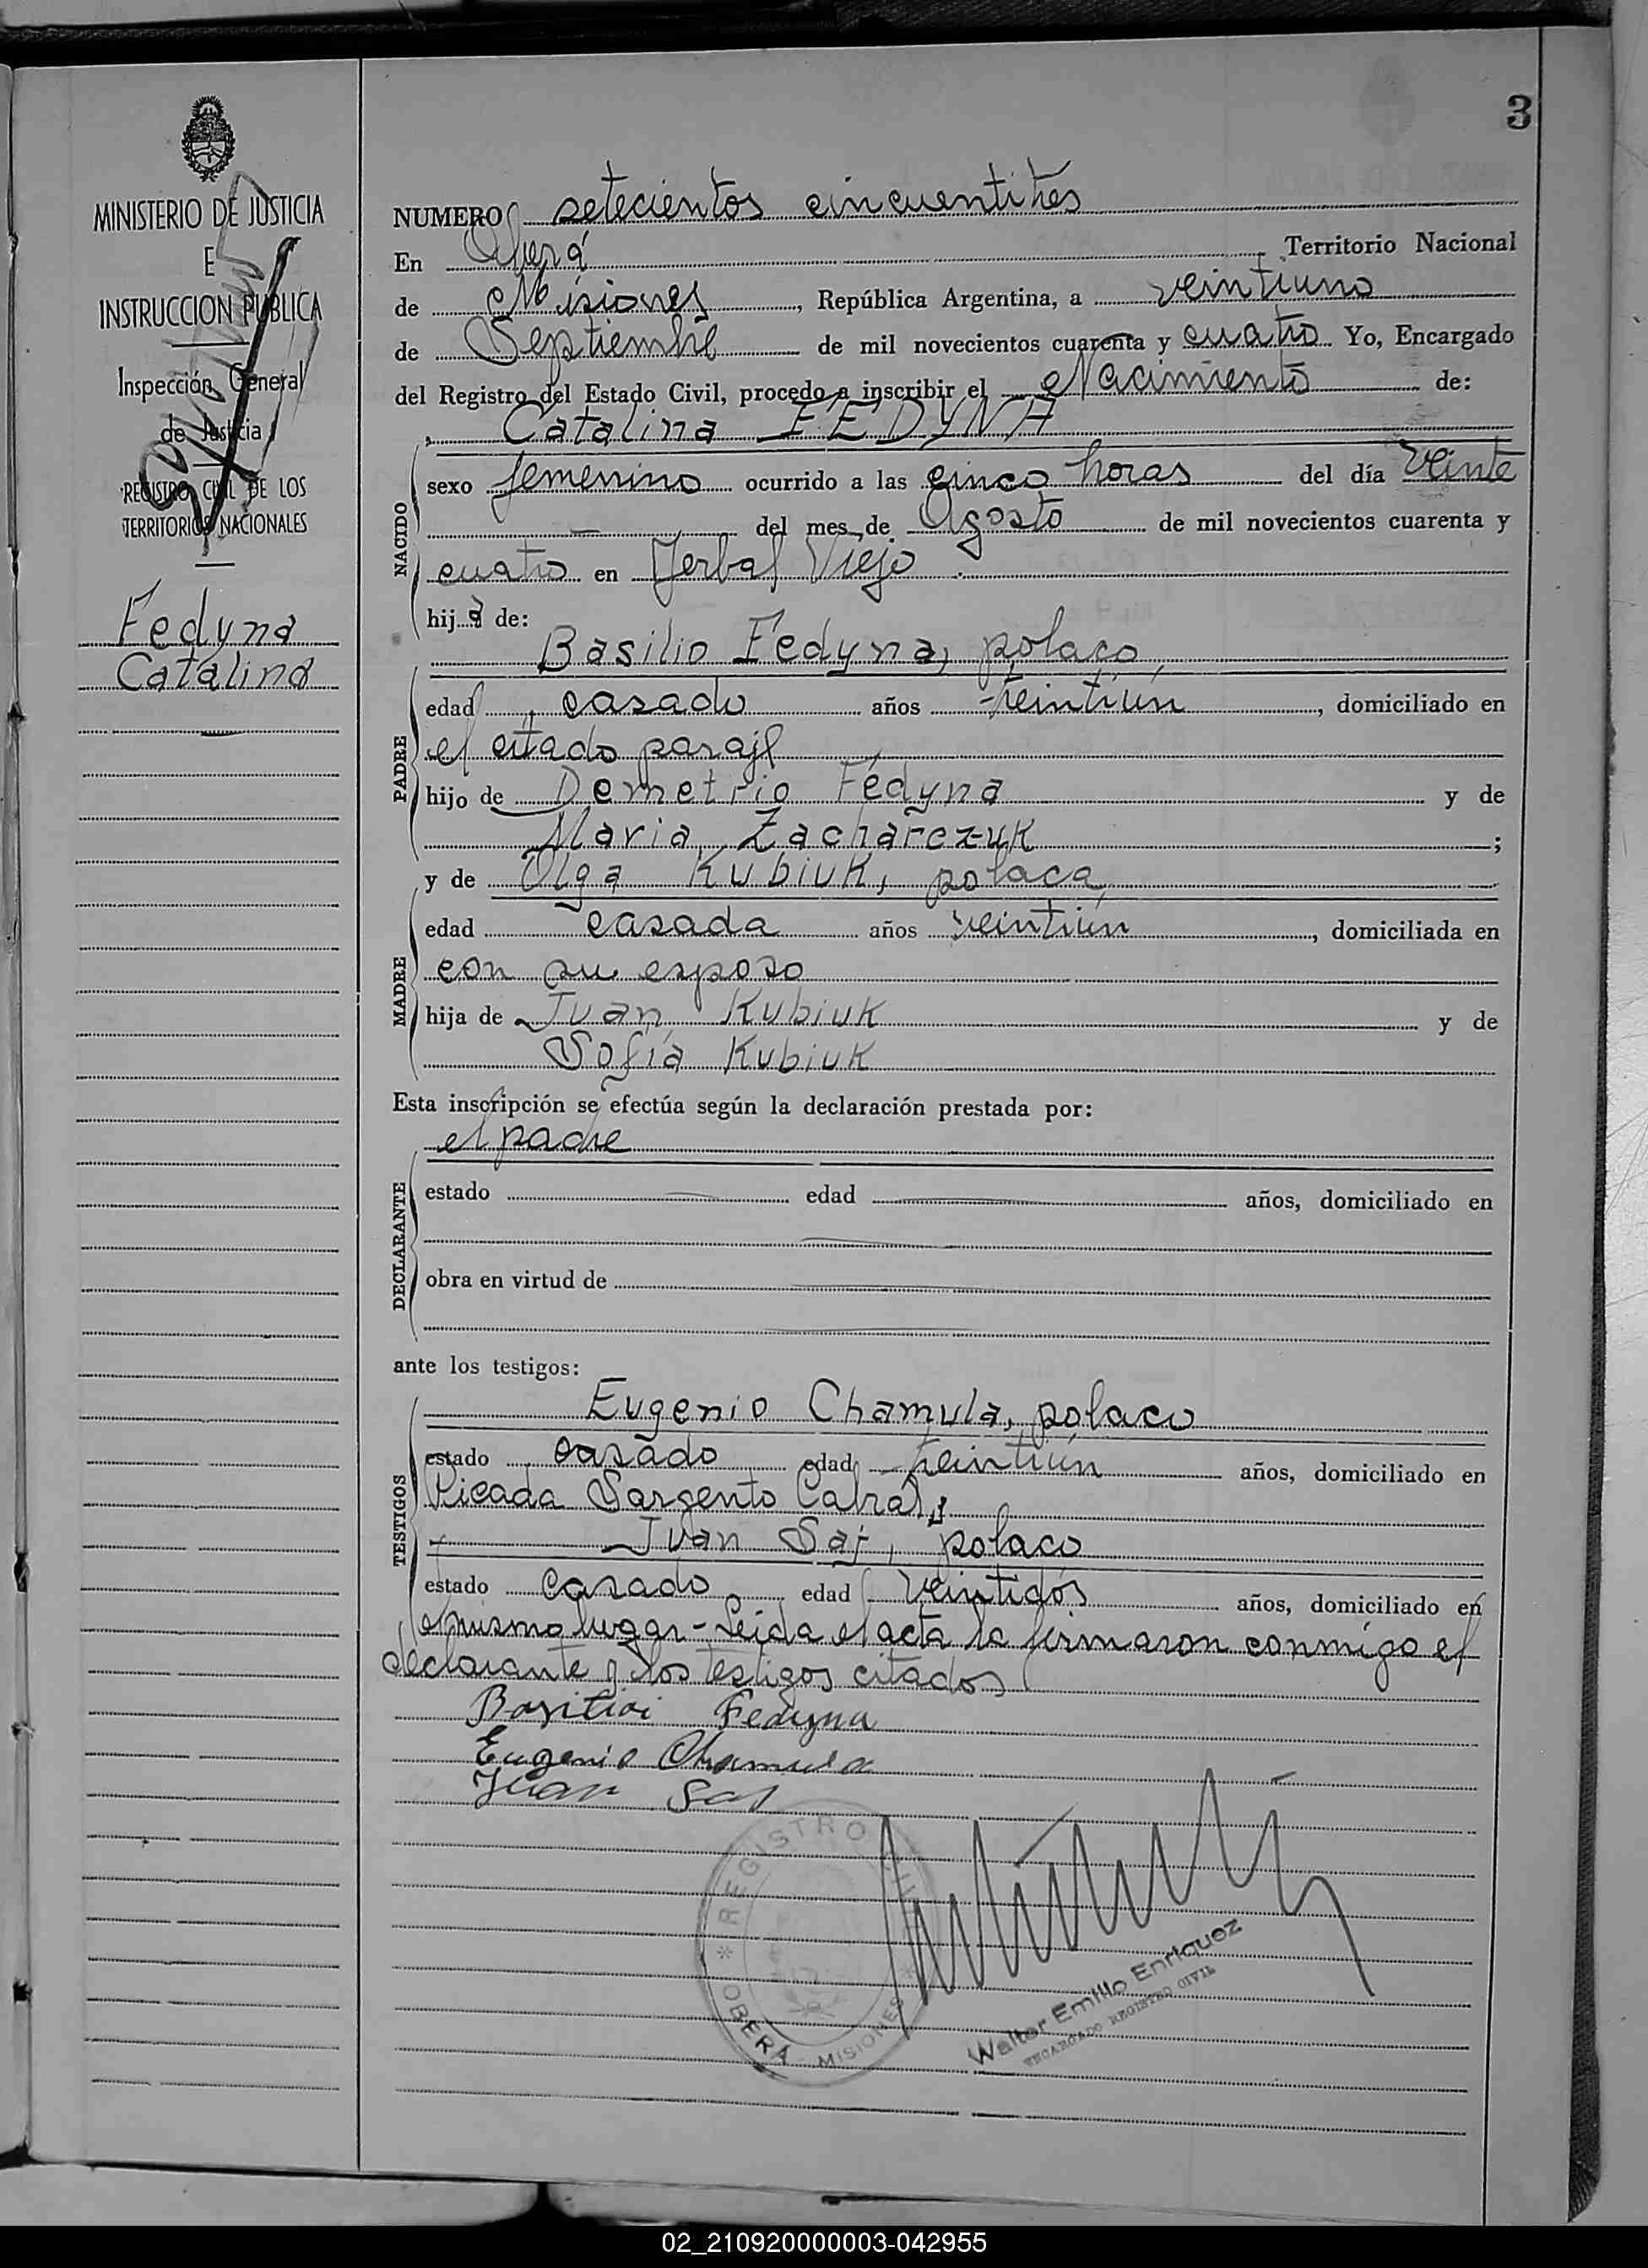 3
MINISTERIO DE JUSTICIA
E
INSTRUCCION PUBLICA
Inspección General
de Justicia
REGISTRO CIVIL DE LOS
TERRITORIOS NACIONALES
Fedyna
Catalina
NUMERO setecientos cincuentitrés
En Oberá Territorio Nacional
de Misiones, República Argentina, a veintiuno
de Septiembre de mil novecientos cuarenta y cuatro Yo, Encargado
del Registro del Estado Civil, procedo a inscribir el Nacimiento de:
Catalina FEDYNA
NACIDO
sexo femenino ocurrido a las cinco horas del día veinte
del mes de Agosto de mil novecientos cuarenta y
cuatro en Yerbal Viejo
hija de:
Basilio Fedyna, polaco,
PADRE
edad casado años treintiún, domiciliado en
el citado paraje
hijo de Demetrio Fedyna y de
María Zacharczuk;
y de Olga Kubiuk, polaca,
MADRE
edad casada años veintiún, domiciliada en
con su esposo
hija de Juan Kubiuk y de
Sofía Kubiuk
Esta inscripción se efectúa según la declaración prestada por:
el padre
DECLARANTE
estado edad años, domiciliado en
obra en virtud de
ante los testigos:
TESTIGOS
Eugenio Chamula, polaco
estado casado edad treintiún años, domiciliado en
Picada Sargento Cabral,
Juan Saj, polaco
estado casado edad veintidós años, domiciliado en
el mismo lugar - Leída el acta la firmaron conmigo el
declarante y los testigos citados
Fedyna
Eugenio Chamula
Juan
REGISTRO CIVIL
OBERÁ - MISIONES
Walter Emilio Enriquez
ENCARGADO REGISTRO CIVIL
02_210920000003-042955